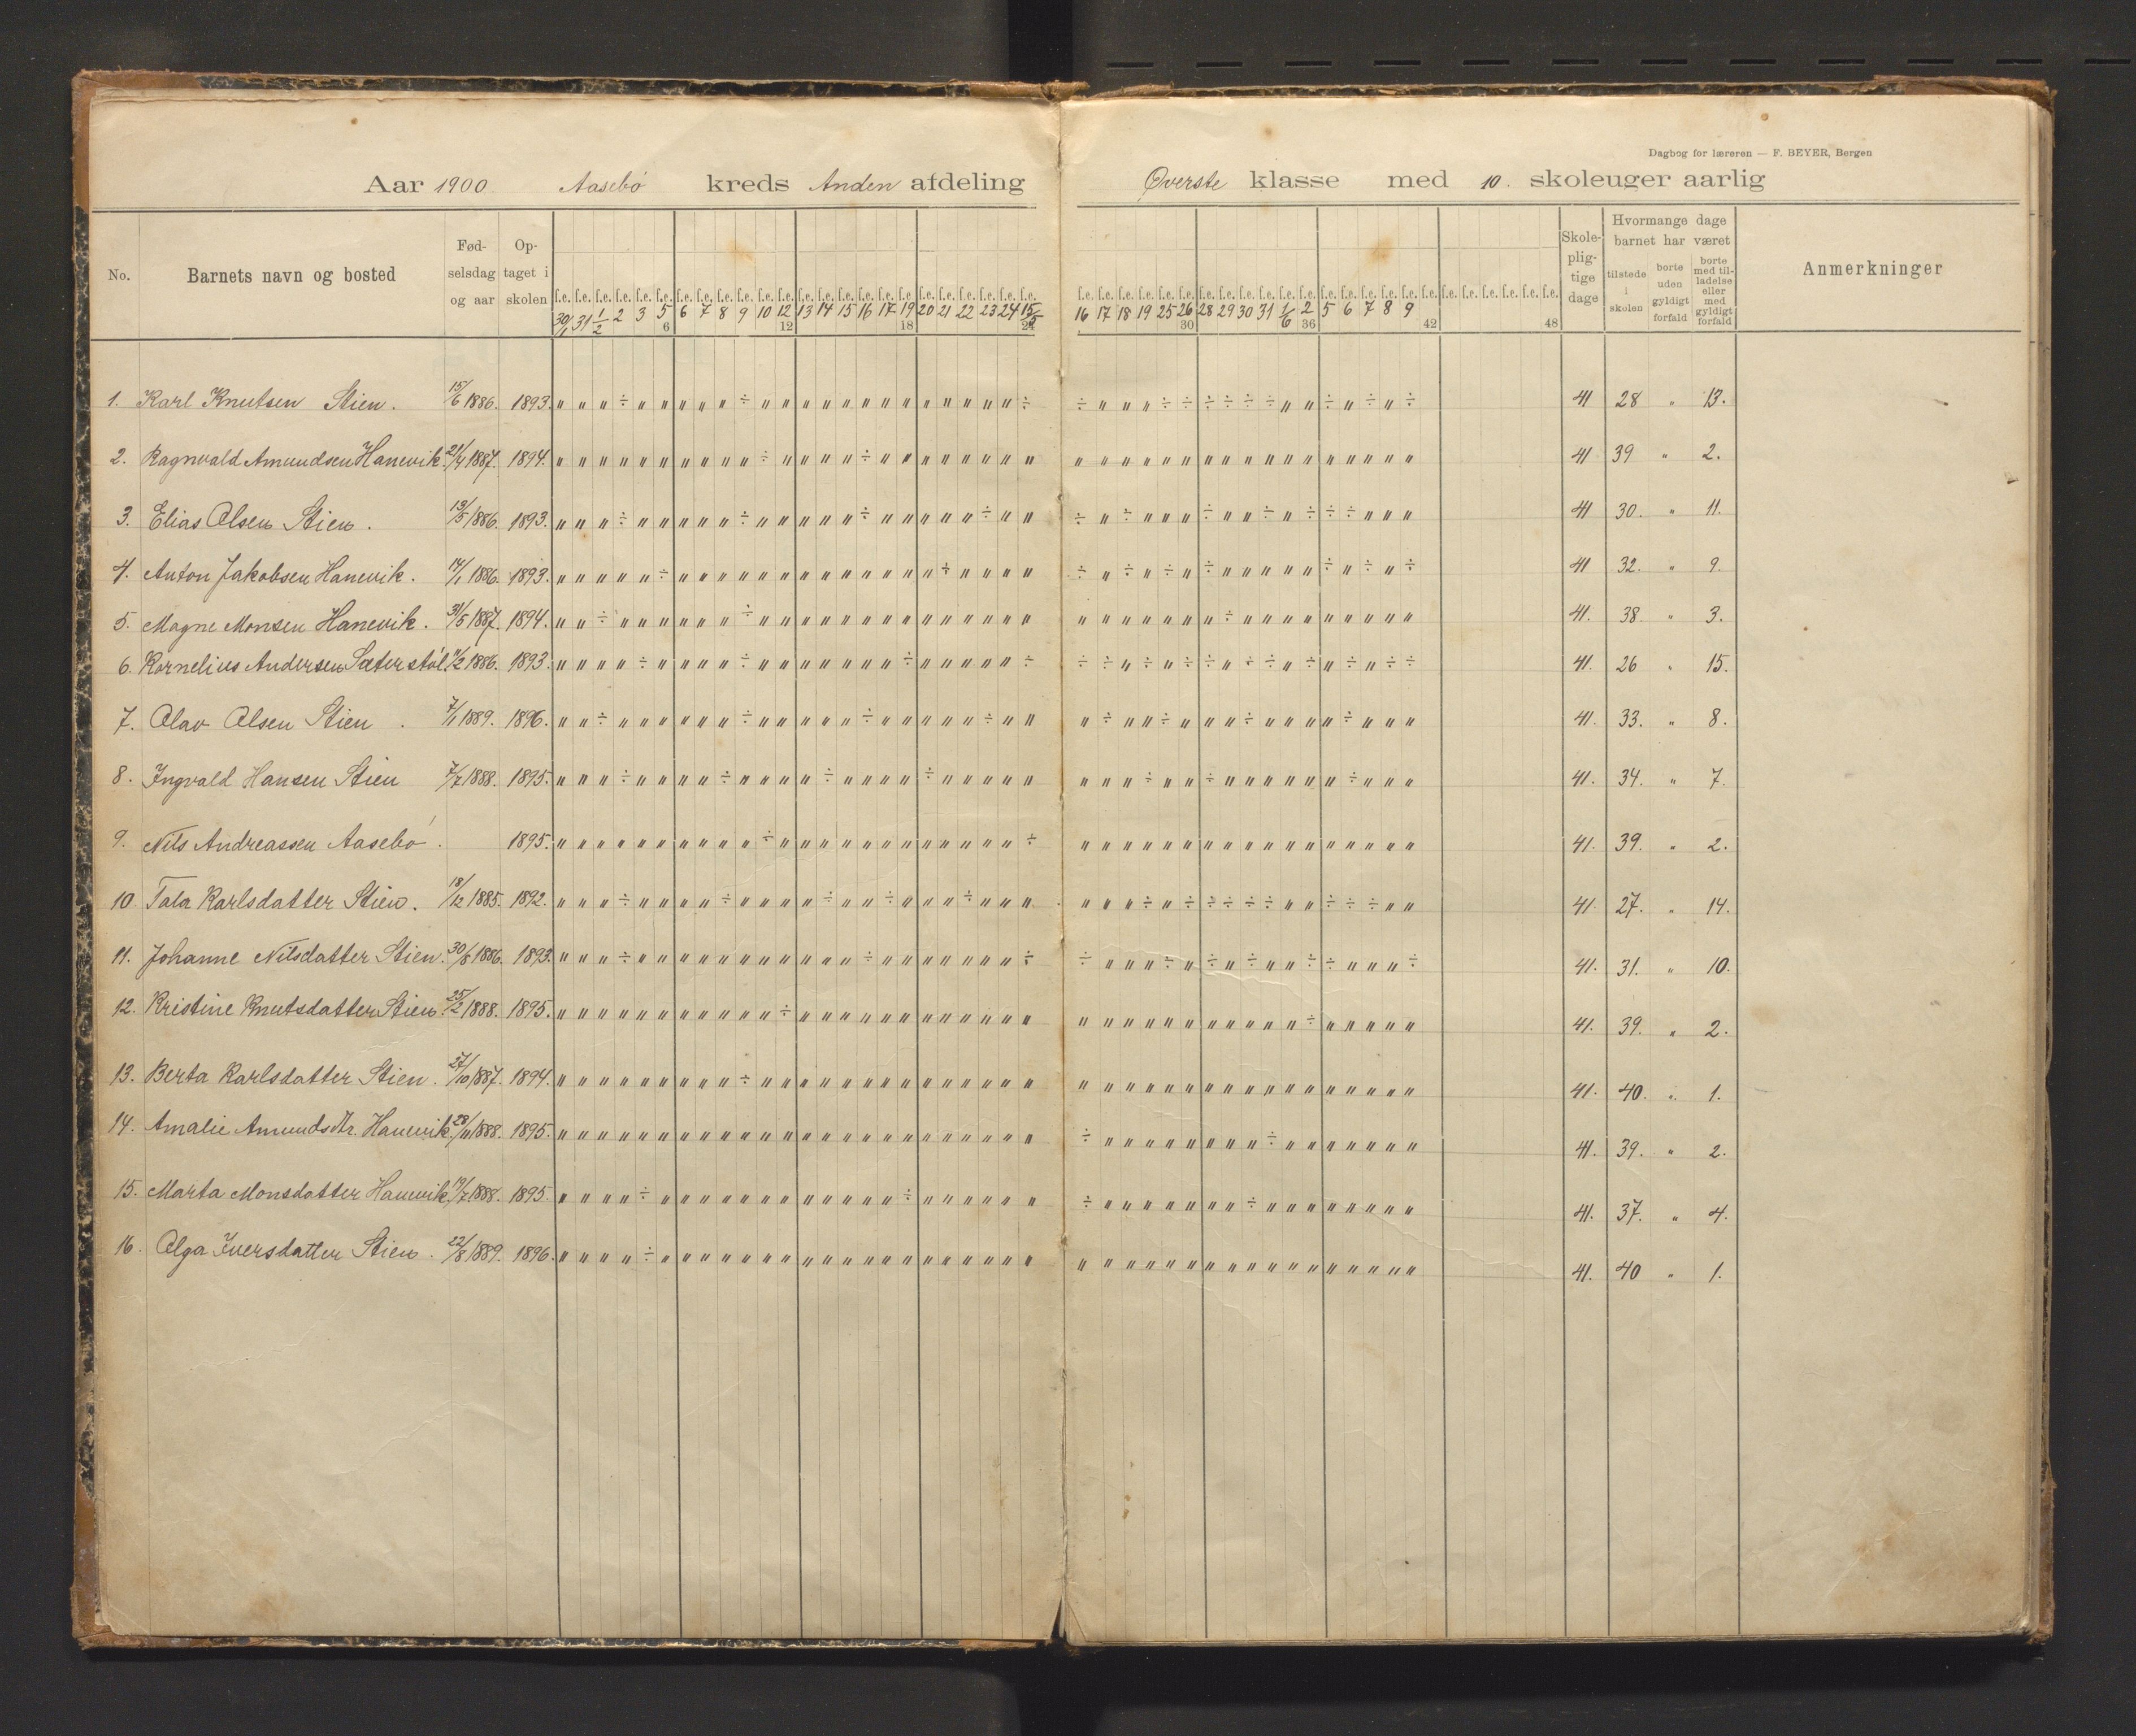 Dagbog for læreren — F. BEYER, Bergen
Aar 1900 Aasebø kreds Anden afdeling Øverste klasse med 10. skoleuger aarlig
No. Barnets navn og bosted Fød-selsdag og aar Op-taget i skolen Skole-plig-tige dage Hvormange dage barnet har været tilstede i skolen borte uden gyldigt forfald borte med til-ladelse eller med gyldigt forfald Anmerkninger
f.e. f.e. f.e. f.e. f.e. f.e. f.e. f.e. f.e. f.e. f.e. f.e. f.e. f.e. f.e. f.e. f.e. f.e. f.e. f.e. f.e. f.e. f.e. f.e. f.e. f.e. f.e. f.e. f.e. f.e. f.e. f.e. f.e. f.e. f.e. f.e. f.e. f.e. f.e. f.e. f.e. f.e. f.e. f.e. f.e. f.e. f.e. f.e.
30/1 31 1/2 2 3 5 6 7 8 9 10 12 13 14 15 16 17 19 20 21 22 23 24 15/5 16 17 18 19 25 26 28 29 30 31 1/6 2 5 6 7 8 9
6 12 18 24 30 36 42 48
1. Karl Knutsen Stien. 15/6 1886. 1893. " " " ÷ " " " " " ÷ " " " " " " " " " " " " " ÷ ÷ " " " ÷ ÷ ÷ ÷ ÷ ÷ " " ÷ " ÷ " ÷ 41 28 " 13.
2. Ragnvald Amundsen Hanevik. 21/4 1887. 1894. " " " " " " " " " " ÷ " " " " ÷ " " " " " " " " " " " " " " " " " " " " " " " " " 41 39 " 2.
3. Elias Olsen Stien. 13/5 1886. 1893. " " " ÷ " " " " " ÷ " " " " " ÷ " " " " " ÷ " " ÷ " ÷ " " " ÷ " " ÷ " ÷ ÷ ÷ " " " 41 30. " 11.
4. Anton Jakobsen Hanevik. 14/1 1886. 1893. " " " " " ÷ " " " " " " " " " " " " " ÷ " " " " ÷ " ÷ " ÷ " ÷ " " " " " ÷ " ÷ " ÷ 41 32. " 9.
5. Magne Monsen Hanevik. 31/5 1887. 1894. " " ÷ " " " " " " ÷ " " " " " " " " " " " " " " " " " " " " " ÷ " " " " " " " " " 41. 38. " 3.
6. Kornelius Andersen Sæterstøl. 11/2 1886. 1893. " " " " ÷ " " " " ÷ " " " " " " " ÷ " " " " " ÷ ÷ ÷ " ÷ " ÷ ÷ " ÷ ÷ " ÷ " ÷ " ÷ ÷ 41. 26 " 15.
7. Olav Olsen Stien. 7/1 1889. 1896. " " ÷ " " " " " " ÷ " " " " " ÷ " " " " " ÷ " " " ÷ " " ÷ " " " ÷ " " " " ÷ " " " 41. 33. " 8.
8. Ingvald Hansen Stien 7/7 1888. 1895. " " " ÷ " " " " ÷ " " " " ÷ " " " " ÷ " " " " " " " " ÷ " " ÷ " " " " " " ÷ " " " 41. 34. " 7.
9. Nils Andreassen Aasebø. 1895. " " " " " " " " " " ÷ " " " " " " " " " " " " ÷ " " " " " " " " " " " " " " " " " 41. 39. " 2.
10. Tala Karlsdatter Stien. 18/12 1885. 1892. " " " ÷ " " " " ÷ " " " " ÷ " " ÷ " " " ÷ " " " " " " ÷ " ÷ ÷ ÷ ÷ ÷ " " ÷ ÷ ÷ " " 41. 27. " 14.
11. Johanne Nilsdatter Stien. 30/8 1886. 1893. " " " ÷ " " " " " " " " " " " ÷ " " " " " " " ÷ ÷ " " " ÷ " ÷ " ÷ " " ÷ ÷ " " " ÷ 41. 31. " 10.
12. Kristine Knutsdatter Stien. 25/2 1888. 1895. " " " " " " " " " " " ÷ " " " " " " " " " " " " " " " " " " " " " " " ÷ " " " " " 41. 39. " 2.
13. Berta Karlsdatter Stien. 27/10 1887. 1894. " " " " " " " " " ÷ " " " " " " " " " " " " " " " " " " " " " " " " " " " " " " " 41. 40. " 1.
14. Amalie Amundsdtr. Hanevik. 28/11 1888. 1895. " " " " " " " " " " " " " " " " " " " " " " " " ÷ " " " " " " " " ÷ " " " " " " " 41. 39. " 2.
15. Marta Monsdatter Hanevik. 19/7 1888. 1895. " " " " ÷ " " " " " " " " " " " " ÷ " " " " " " ÷ " " " " " " " ÷ " " " " " " " " 41. 37. " 4.
16. Olga Iversdatter Stien. 22/8 1889. 1896. " " " " ÷ " " " " " " " " " " " " " " " " " " " " " " " " " " " " " " " " " " " " 41. 40 " 1.